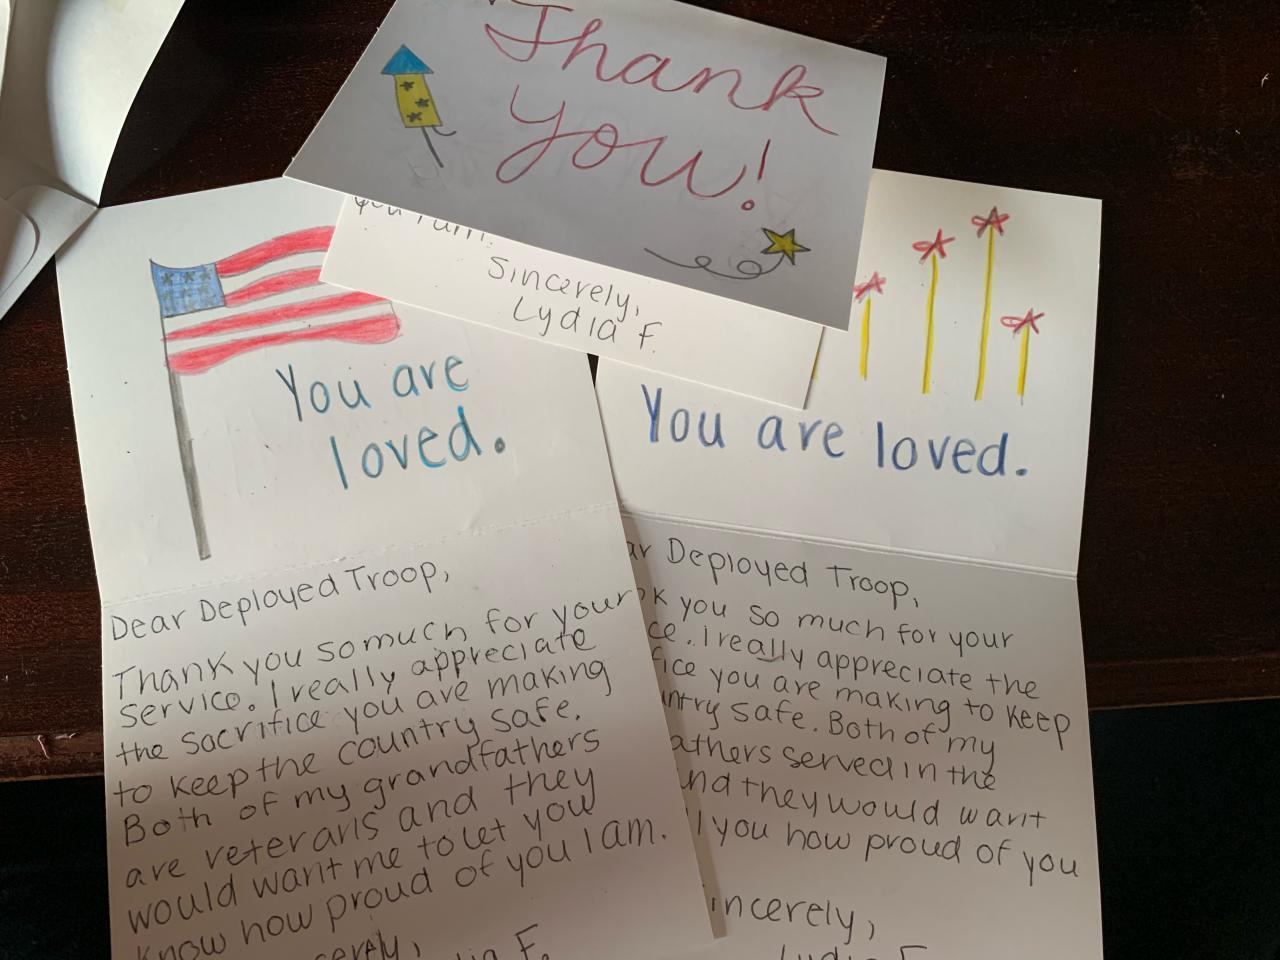 Thank
you!
Sincerely,
Lydia F.
You are
loved.
Dear Deployed Troop,
Thank you so much for your
service. I really appreciate
the sacrifice you are making
to keep the country safe.
Both of my grandfathers
are veterans and they
would want me to let you
know how proud of you I am.
You are loved.
Deployed Troop,
you so much for your
I really appreciate the
you are making to keep
safe. Both of my
served in the
and they would want
you how proud of you
Sincerely,
Lydia F.